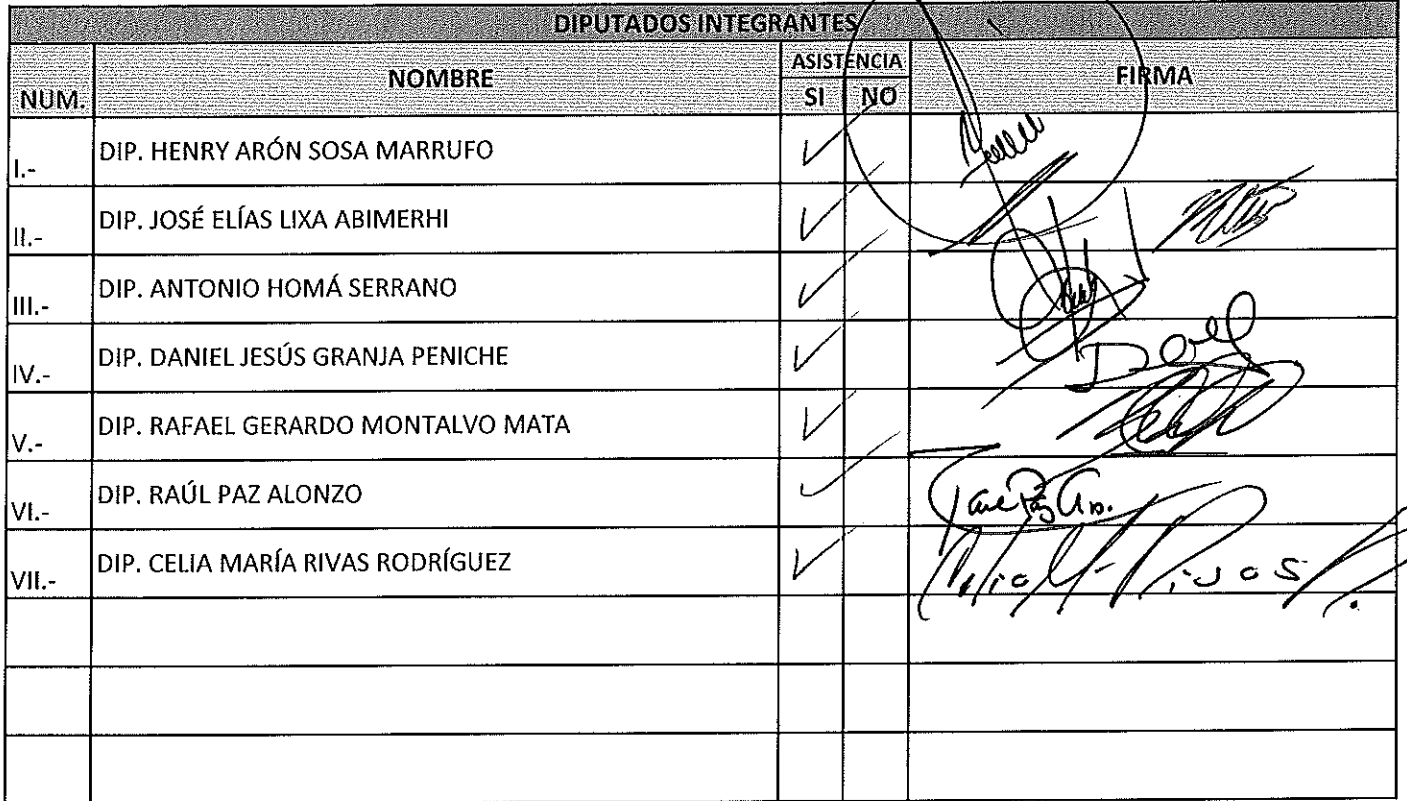 DIPUTADOS INTEGRANTES
NUM. NOMBRE ASISTENCIA FIRMA
SI NO
I.- DIP. HENRY ARÓN SOSA MARRUFO
II.- DIP. JOSÉ ELÍAS LIXA ABIMERHI
III.- DIP. ANTONIO HOMÁ SERRANO
IV.- DIP. DANIEL JESÚS GRANJA PENICHE
V.- DIP. RAFAEL GERARDO MONTALVO MATA
VI.- DIP. RAÚL PAZ ALONZO
VII.- DIP. CELIA MARÍA RIVAS RODRÍGUEZ